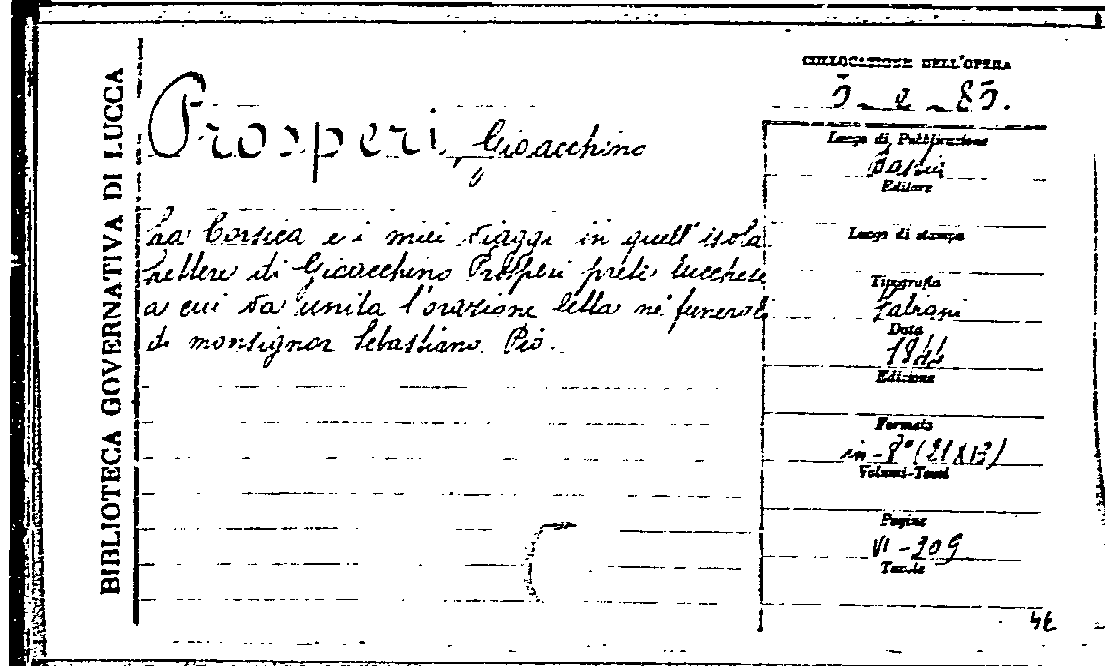 BIBLIOTECA GOVERNATIVA DI LUCCA
COLLOCAZIONE DELL'OPERA
Prosperi, Gioacchino
La Corsica e i miei viaggi in quell'isola
Lettere di Gioacchino Prosperi prete lucchese
a cui va unita l'orazione letta ne' funerali
di monsignor Sebastiano Pio.
Luogo di Pubblicazione
Bastia
Editore
Luogo di stampa
Tipografia
Fabiani
Data
1844
Edizione
Formato
in-8° (21X13)
Volumi-Tomi
Pagine
VI-209
Tavole